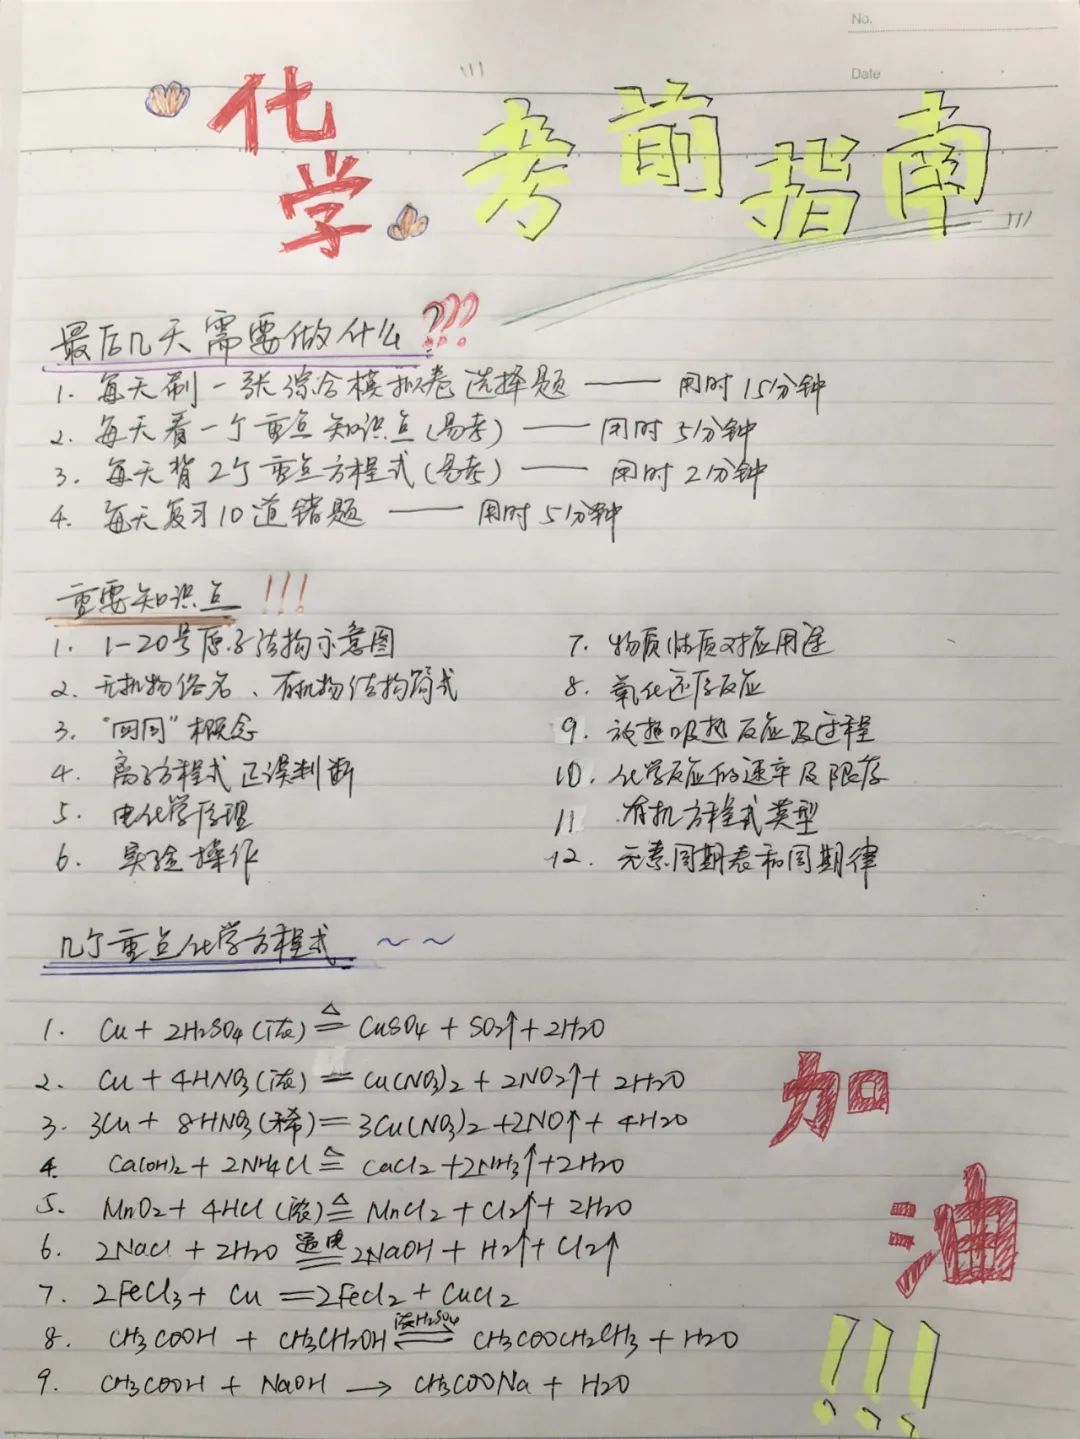 No.
Date
化学
考前指南
最后几天需要做什么???
1. 每天刷一张综合模拟卷选择题 —— 用时15分钟
2. 每天看一个重点知识点(易考) —— 用时5分钟
3. 每天背2个重点方程式(易考) —— 用时2分钟
4. 每天复习10道错题 —— 用时5分钟
重要知识点!!!
1. 1-20号原子结构示意图
2. 无机物俗名、有机物结构简式
3. "四同"概念
4. 离子方程式正误判断
5. 电化学原理
6. 实验操作
7. 物质性质对应用途
8. 氧化还原反应
9. 放热吸热反应及过程
10. 化学反应的速率及限度
11. 有机方程式类型
12. 元素周期表和周期律
几个重点化学方程式 ~~
1. Cu + 2H2SO4(浓) ≜ CuSO4 + SO2↑ + 2H2O
2. Cu + 4HNO3(浓) = Cu(NO3)2 + 2NO2↑ + 2H2O
3. 3Cu + 8HNO3(稀) = 3Cu(NO3)2 + 2NO↑ + 4H2O
4. Ca(OH)2 + 2NH4Cl ≜ CaCl2 + 2NH3↑ + 2H2O
5. MnO2 + 4HCl(浓) ≜ MnCl2 + Cl2↑ + 2H2O
6. 2NaCl + 2H2O 通电== 2NaOH + H2↑ + Cl2↑
7. 2FeCl3 + Cu == 2FeCl2 + CuCl2
8. CH3COOH + CH3CH2OH 浓H2SO4⇌ CH3COOCH2CH3 + H2O
9. CH3COOH + NaOH → CH3COONa + H2O
加油
!!!